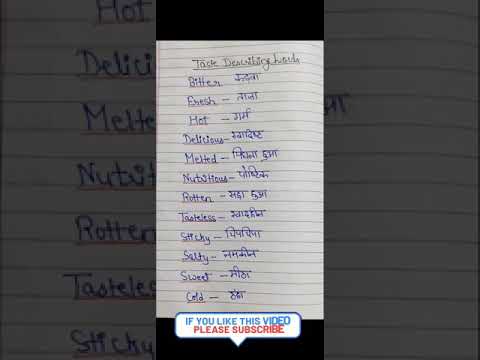 Taste Describing words
Bitter - कड़वा
Fresh - ताजा
Hot - गर्म
Delicious - स्वादिष्ट
Melted - पिघला हुआ
Nutritious - पौष्टिक
Rotten - सड़ा हुआ
Tasteless - स्वादहीन
Sticky - चिपचिपा
Salty - नमकीन
Sweet - मीठा
Cold - ठंडा
IF YOU LIKE THIS VIDEO
PLEASE SUBSCRIBE